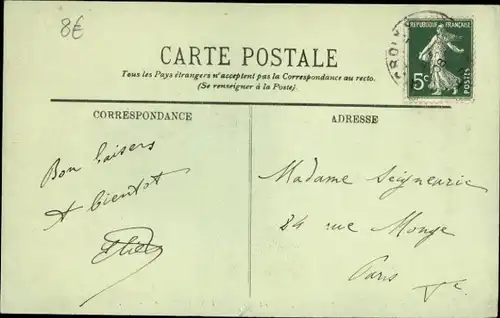 8€
CARTE POSTALE
Tous les Pays étrangers n'acceptent pas la Correspondance au recto.
(Se renseigner à la Poste).
CORRESPONDANCE
ADRESSE
RÉPUBLIQUE FRANÇAISE
5c
POSTES
Bon baisers
A bientot
Madame Seignearic
84 rue Monge
Paris